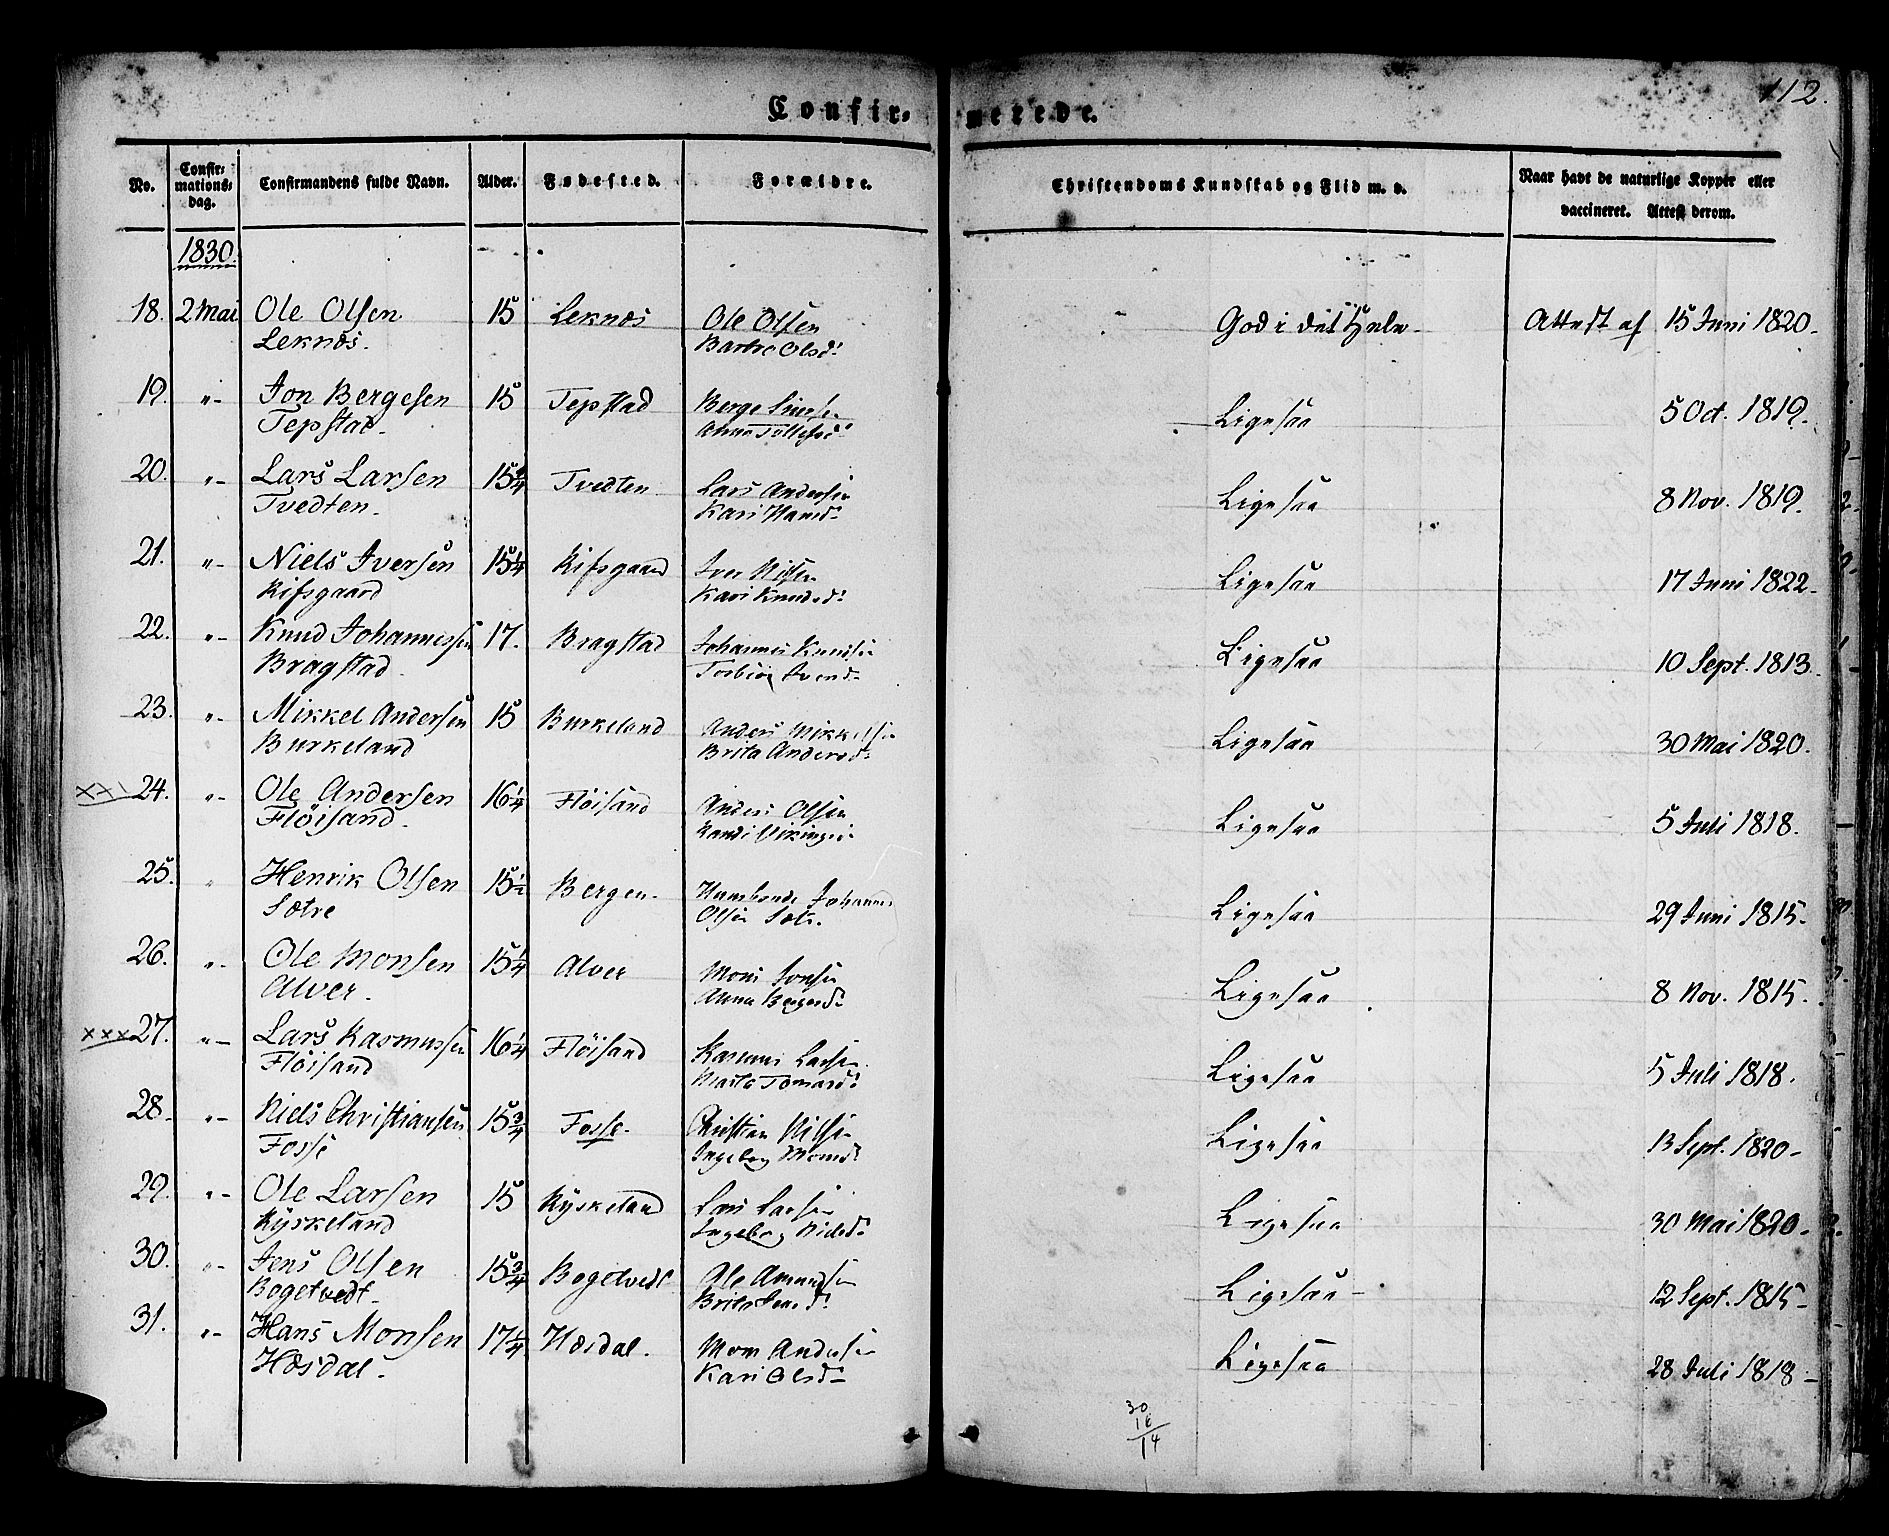 112.
Confirmerede.
No. Confirmations-dag. Confirmandens fulde Navn. Alder. Fødested. Forældre. Christendoms Kundskab og Flid m. v. Naar havt de naturlige Kopper eller vaccineret. Attest derom.
1830.
18. 2 Mai Ole Olsen 15 Leknæs Ole Olsen God i det Hele Attest af 15 Juni 1820.
Leknæs. Olsd:
19. "- Jon Bergesen 15 Tepstad Berge 5 Oct. 1819.
Tepstad. Anna Ligesaa
20. "- Lars Larsen 15 3/4 Tvedten Lars Andersen Ligesaa 8 Nov. 1819.
Tvedten. Kari Hansd:
21. "- Niels Iversen 15 1/4 Rifsgaard Iver Nilsen Ligesaa 17 Juni 1822.
Rifsgaard Kari Knudsd:
22. "- Knud Johannessen 17. Bragstad Johannes Knudsen Ligesaa 10 Sept. 1813.
Bragstad.
23. "- Mikkel Andersen 15 Burkeland Anders Mikkelsen Ligesaa 30 Mai 1820.
Burkeland Brita Andersd:
xx 24. "- Ole Andersen 16 1/4 Flöisand Anders Olsen Ligesaa 5 Juli 1818.
Flöisand.
25. " Henrik Olsen 15 1/2 Bergen. Johannes Ligesaa 29 Juni 1815.
Sætre Olsen
26. "- Ole Monsen 15 1/4 Alver Mons Ligesaa 8 Nov. 1815.
Alver. Anna Bergesd:
xxx 27. "- Lars Rasmussen 16 1/4 Flöisand Rasmus Larsen Ligesaa 5 Juli 1818.
Flöisand Marta
28. "- Niels Christiansen 15 3/4 Fosse. Christian Nilsen Ligesaa 13 Sept. 1820-
Fosse Ingeborg Monsd:
29. "- Ole Larsen 15 Ryskeland Lars Larsen Ligesaa 30 Mai 1820.
Ryskeland Ingeborg Nielsd:
30. "- Jens Olsen 15 3/4 Bogetvedt Ole Amundsen Ligesaa- 12 Sept. 1815-
Bogetvedt- Brita Jensd:
31. "- Hans Monsen 17 1/4 Hæsdal. Mons Andersen Ligesaa 28 Juli 1818-
Hæsdal- Kari Olsd-
30
16
14